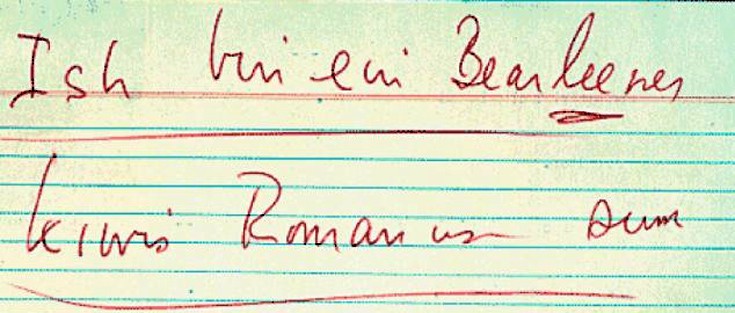 Ish bin ein Bearleener
kiwis Romanus sum